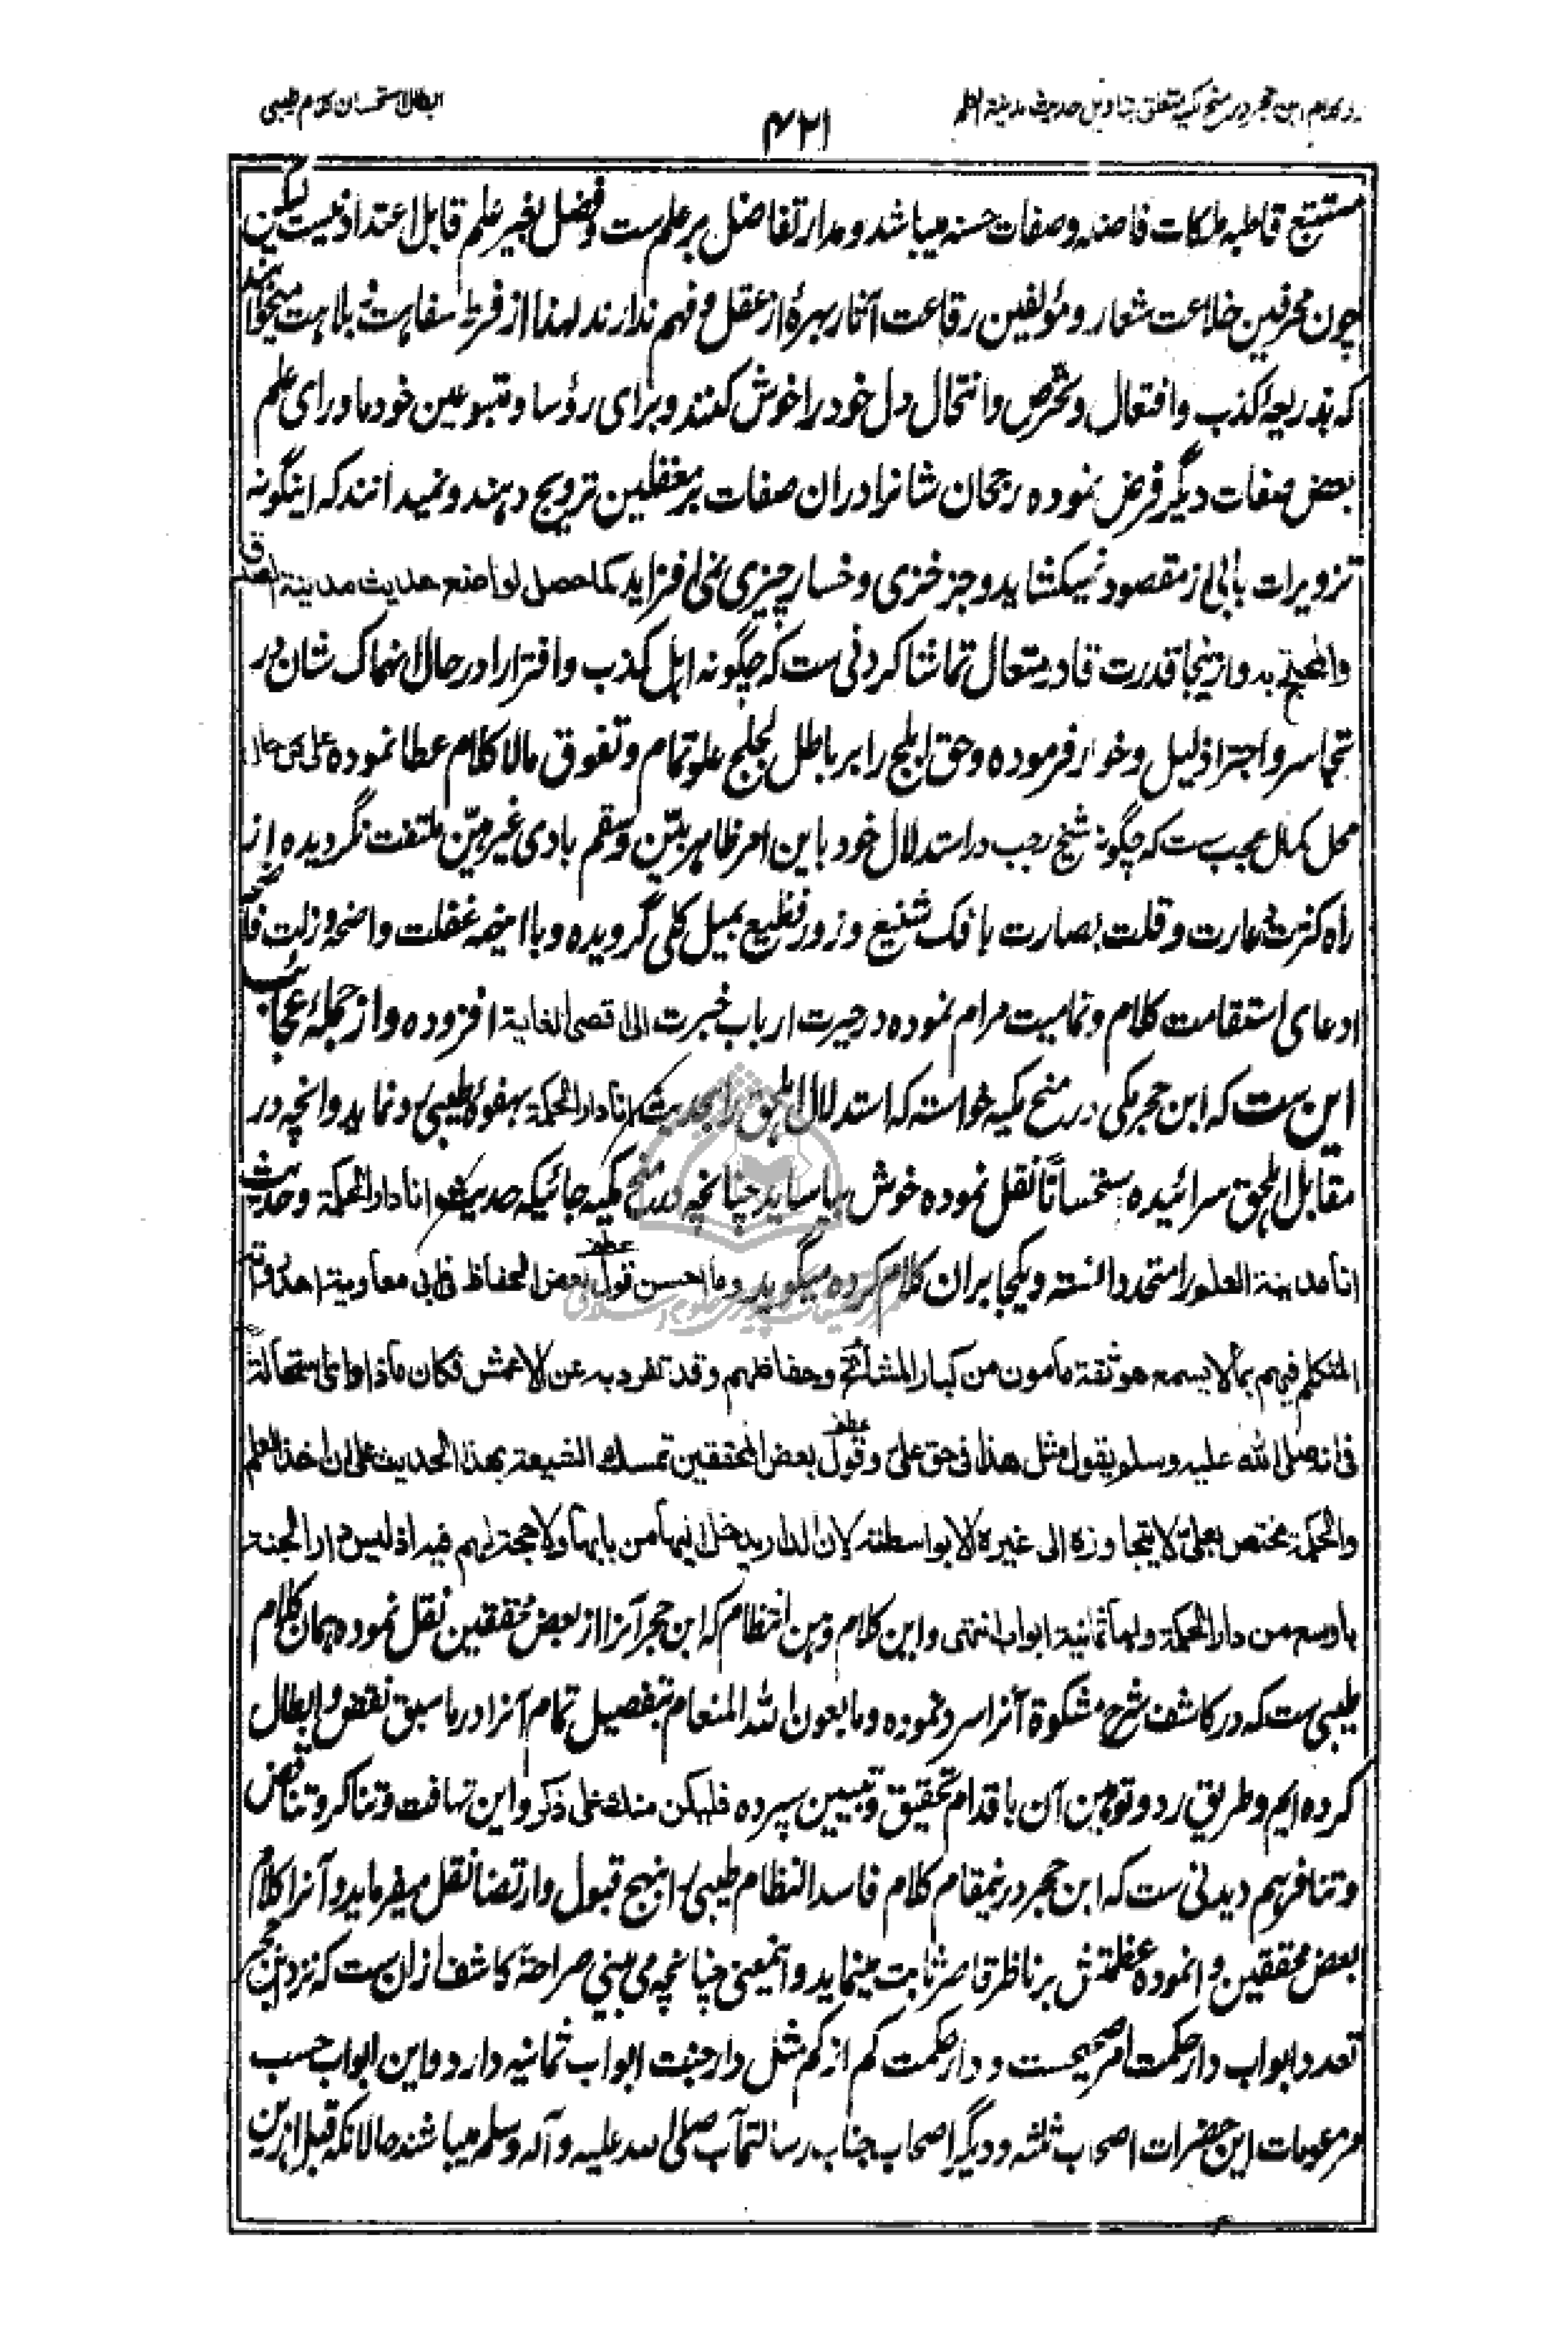 رد کلام ابن حجر در منح مکیه متعلق بتاویل حدیث مدینة العلم
۴۲۱
ابطال استحسان کلام طیبی
مستتبع قاطبه ملکات فاضله و صفات حسنه میباشد و مدار تفاضل بر علم ست و فضل بغیر علم قابل اعتداد نیست لیکن
چون محرفین خلاعت شعار و مؤلفین رقاعت آثار بهرهٔ از عقل و فهم ندارند لهذا از فرط سفاهت و بلاهت میخواهند
که بذریعهٔ کذب و افتعال و تخرص و انتحال دل خود را خوش کنند و برای رؤسا و متبوعین خود ماورای علم
بعض صفات دیگر فرض نموده رجحان شانرا دران صفات بر مغفلین ترویج دهند و نمیدانند که اینگونه
تزویرات بابی از مقصود نمیکشاید و جز خزی و خسار چیزی نمی افزاید کما حصل لواضع حدیث مدینة الصدق
والمحتج به و ازینجا قدرت قادر متعال تماشا کردنی ست که چگونه اهل کذب و افترا را در حال انهماک شان در
تجاسر و اجترا ذلیل و خوار فرموده و حق ابلج را بر باطل لجلج علو تمام و تفوق مالا کلام عطا نموده
محل کمال عجب ست که چگونه شیخ رجب در استدلال خود باین امر ظاهر بیّن و سقم بادی غیر هیّن ملتفت نگردیده از
راه کثرت عارت و قلت بصارت بافک شنیع و زور فظیع بمیل کلی گرویده و با اینهمه غفلت واضحه و زلت فاضحه
ادعای استقامت کلام و تمامیت مرام نموده در حیرت ارباب خبرت الی اقصی الغایة افزوده و از جملهٔ عجائب
این ست که ابن حجر مکی در منح مکیه خواسته که استدلال اهل حق را بحدیث انا دار الحکمة بهفوهٔ طیبی رد نماید و آنچه در
مقابل اهل حق سرائیده مستحسناً نقل نموده خوش بیاساید چنانچه در منح مکیه جائیکه حدیث انا دار الحکمة و حدیث
انا مدینة العلم را متحد دانسته و یکجا بران کلام کرده میگوید و ما احسن قول بعض الحفاظ فی ابی معاویة احد رواته
المتکلم فیهم بما لا یسمع هو ثقة مأمون من کبار المشائخ و حفاظهم و قد تفرد به عن الاعمش فکان ماذا و ای استحالة
فی انه صلی الله علیه وسلم یقول مثل هذا فی حق علی و قول بعض المحققین تمسک الشیعة بهذا الحدیث علی ان اخذ العلم
والحکمة مختص بعلی لا یتجاوزه الی غیره الا بواسطته لان الدار یدخل الیها من بابها و لا حجة لهم فیه اذ لیس دار الجنة
باوسع من دار الحکمة و لها ثمانیة ابواب انتهی و این کلام وهن انتظام که ابن حجر آنرا از بعض محققین نقل نموده همان کلام
طیبی ست که در کاشف شرح مشکوة آنرا سرد نموده و ما بعون الله المنعام بتفصیل تمام آنرا در ما سبق نقض و ابطال
کرده ایم و طریق رد و توهین آن باقدام تحقیق و تبیین سپرده فلیکن منک علی ذکر و این تهافت و تناکر و تناقض
و تنافر هم دیدنی ست که ابن حجر درینمقام کلام فاسد النظام طیبی را بنهج قبول و ارتضا نقل میفرماید و آنرا کلام
بعض محققین وا نموده عظمتش بر ناظر قاصر ثابت مینماید و اینمعنی چنانچه می بینی صراحةً کاشف ازان ست که نزد ابن حجر
تعدد ابواب دار حکمت امر صحیحست و دار حکمت کم از کم مثل دار جنت ابواب ثمانیه دارد و این ابواب حسب
مزعومات این حضرات اصحاب ثلثه و دیگر اصحاب جناب رسالتمآب صلی الله علیه و آله وسلم میباشند حالانکه قبل ازین